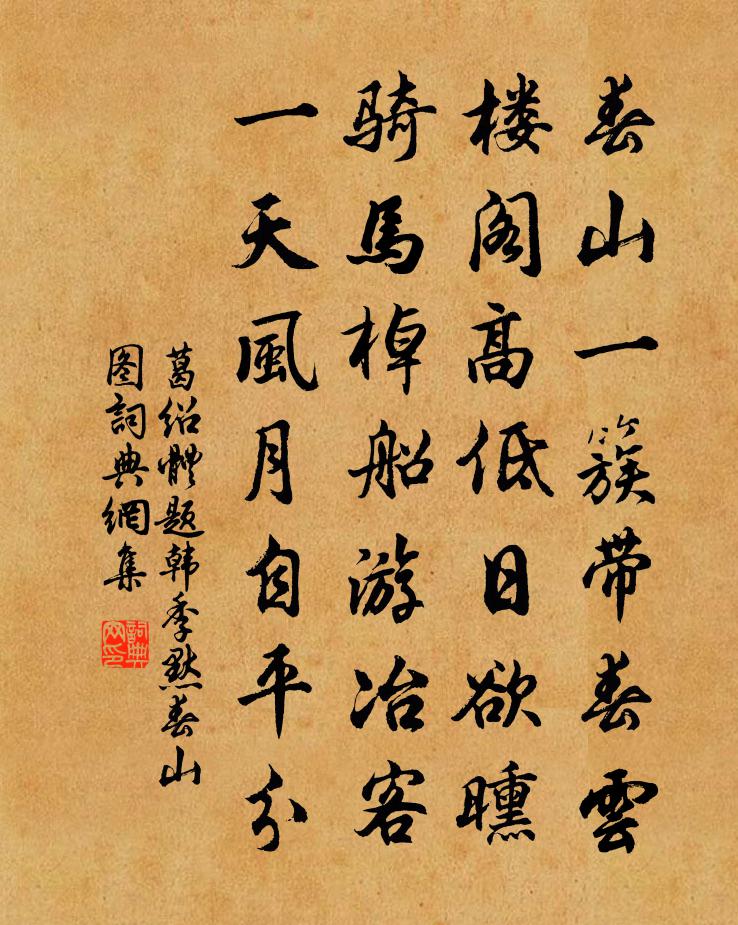 春山一簇带春雲
楼阁高低日欲曛
骑馬棹船游冶客
一天風月自平分
葛绍體题韩季默春山
图詞典網集
詞典網印